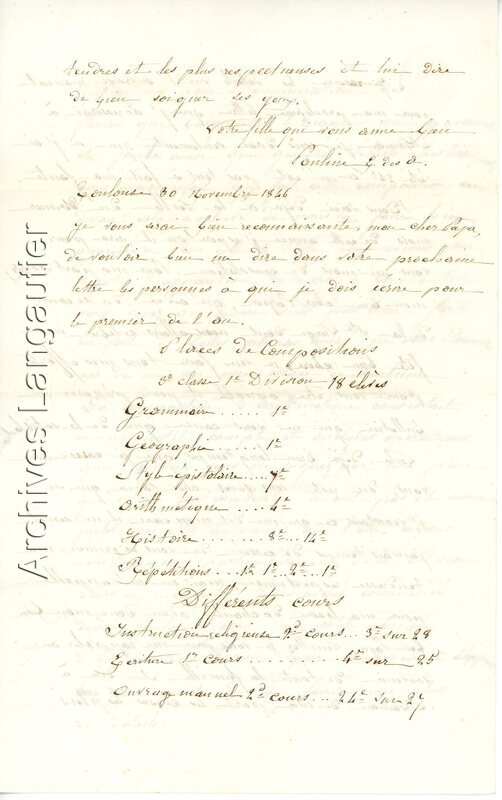 tendres et les plus respectueuses et lui dire
de bien soigner ses yeux.
Votre fille qui vous aime bien
Pauline
Toulouse 30 Novembre 1846
je vous serai bien reconnaissante, mon cher Papa,
de vouloir bien me dire dans votre prochaine
lettre les personnes à qui je dois écrire pour
le premier de l'an.
Places de Compositions
3e classe 1re Division 18 élèves
Grammaire ..... 1re
Géographie ..... 1re
Style épistolaire .... 7e
Arithmétique .... 4e
Histoire ........ 8e ... 14e
Répétitions ... 1re 1re 2e .. 1re
Différents cours
Instruction religieuse 2d cours ... 3e sur 28
Ecriture 1er cours .......... 4e sur 25
Ouvrage manuel 2d cours ... 24e sur 27
Archives Langautier